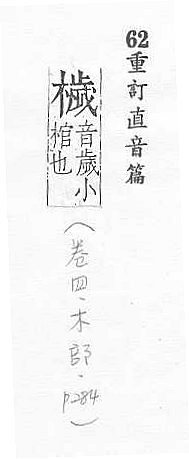 62重訂直音篇
檅音歲小
棺也
(卷四·木部·p.284)